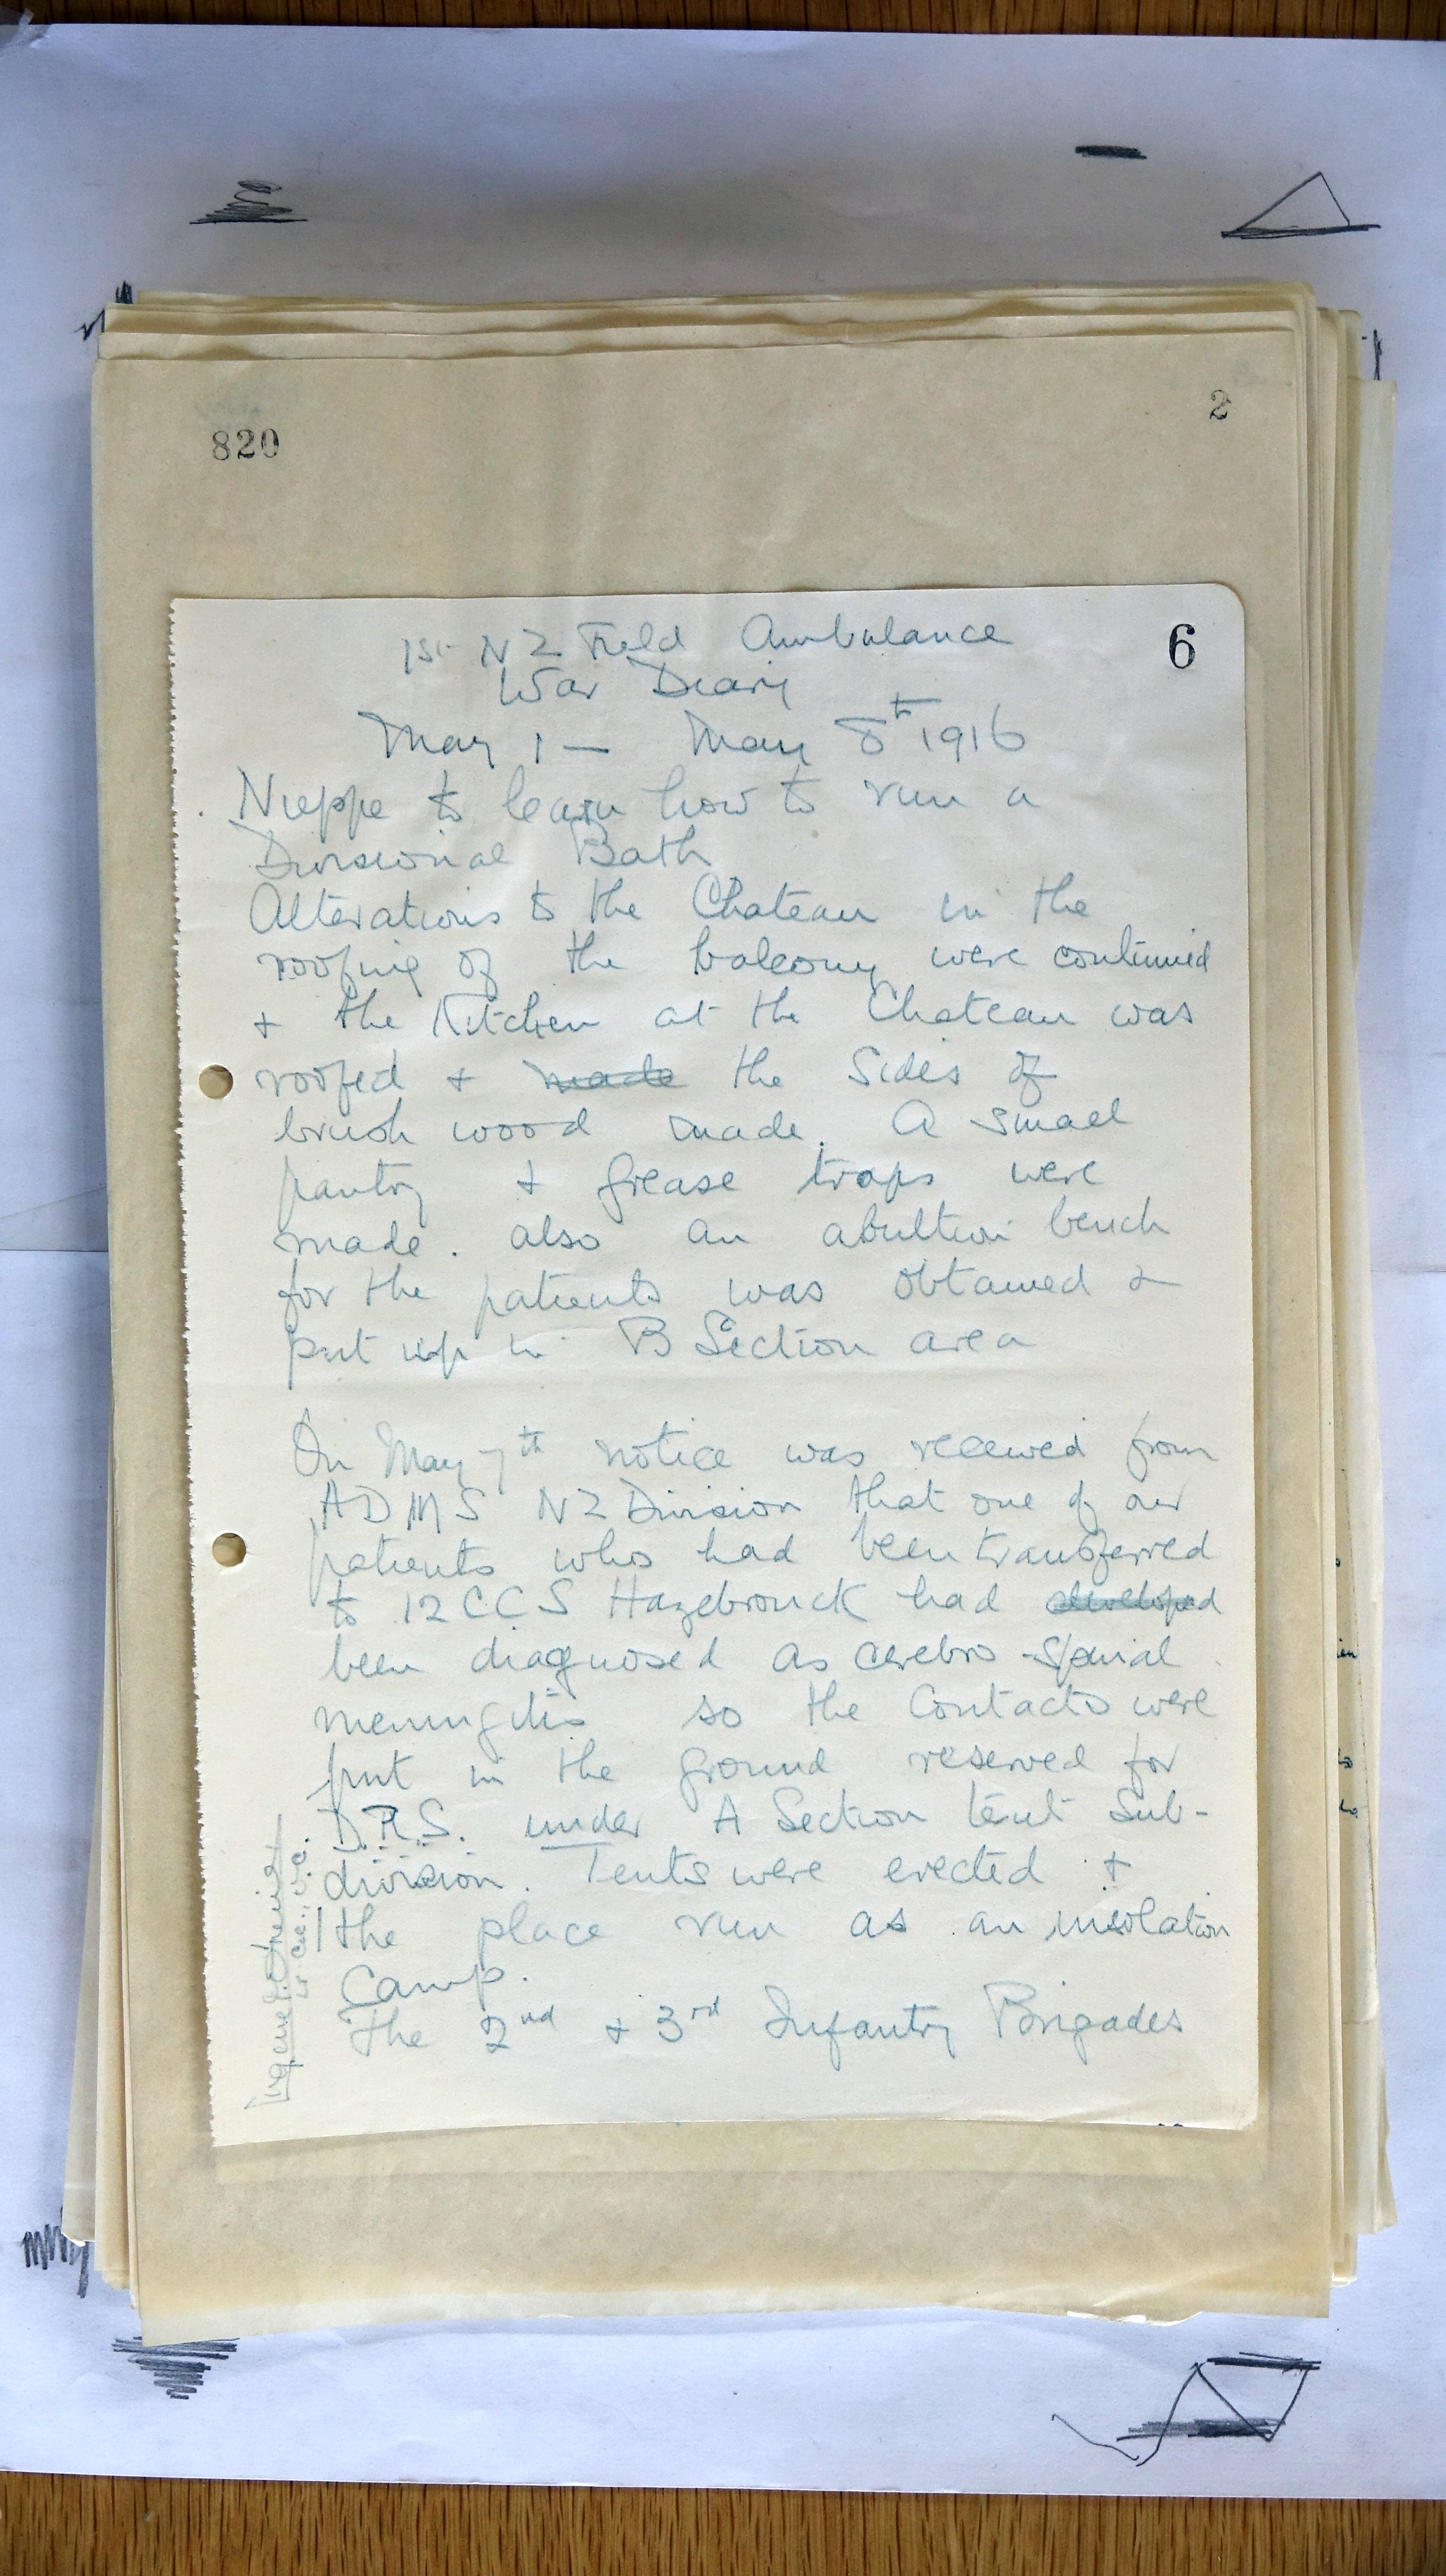 820
2
6
1st NZ Field Ambulance
War Diary
May 1 — May 8th 1916
Nieppe to learn how to run a
Divisional Bath
Alterations to the Chateau in the
roofing of the balcony were continued
+ the Kitchen at the Chateau was
roofed + made the sides of
brush wood made. A small
pantry + grease traps were
made. also an abultion bench
for the patients was obtained &
put up in B Section area
On May 7th notice was received from
ADMS NZ Division that one of our
patients who had been transferred
to 12 CCS Hazebrouck had developed
been diagnosed as cerebro-spinal
meningitis so the Contacts were
put in the ground reserved for
D.R.S. under A Section tent Sub-
division. Tents were erected +
the place run as an insolation
Camp.
The 2nd + 3rd Infantry Brigades